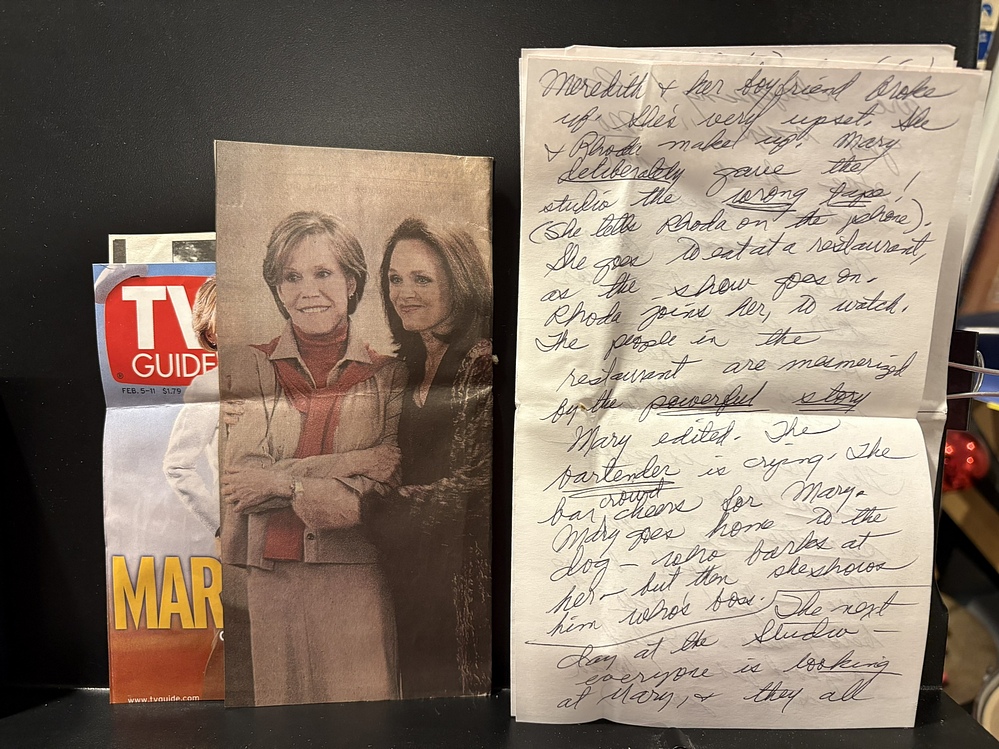 TV
GUIDE
FEB. 5-11 $1.79
MAR
www.tvguide.com
Meredith & her boyfriend broke
up. She's very upset. She
& Rhoda make up. Mary
deliberately gave the
studio the wrong tape!
(She tells Rhoda on the phone).
She goes to eat at a restaurant,
as the show goes on.
Rhoda joins her, to watch.
The people in the
restaurant are mesmerized
by the powerful story
Mary edited. The
bartender is crying. The
bar crowd cheers for Mary.
Mary goes home to the
dog – who barks at
her – but then she shows
him who's boss. The next
day at the Studio –
everyone is looking
at Mary, & they all